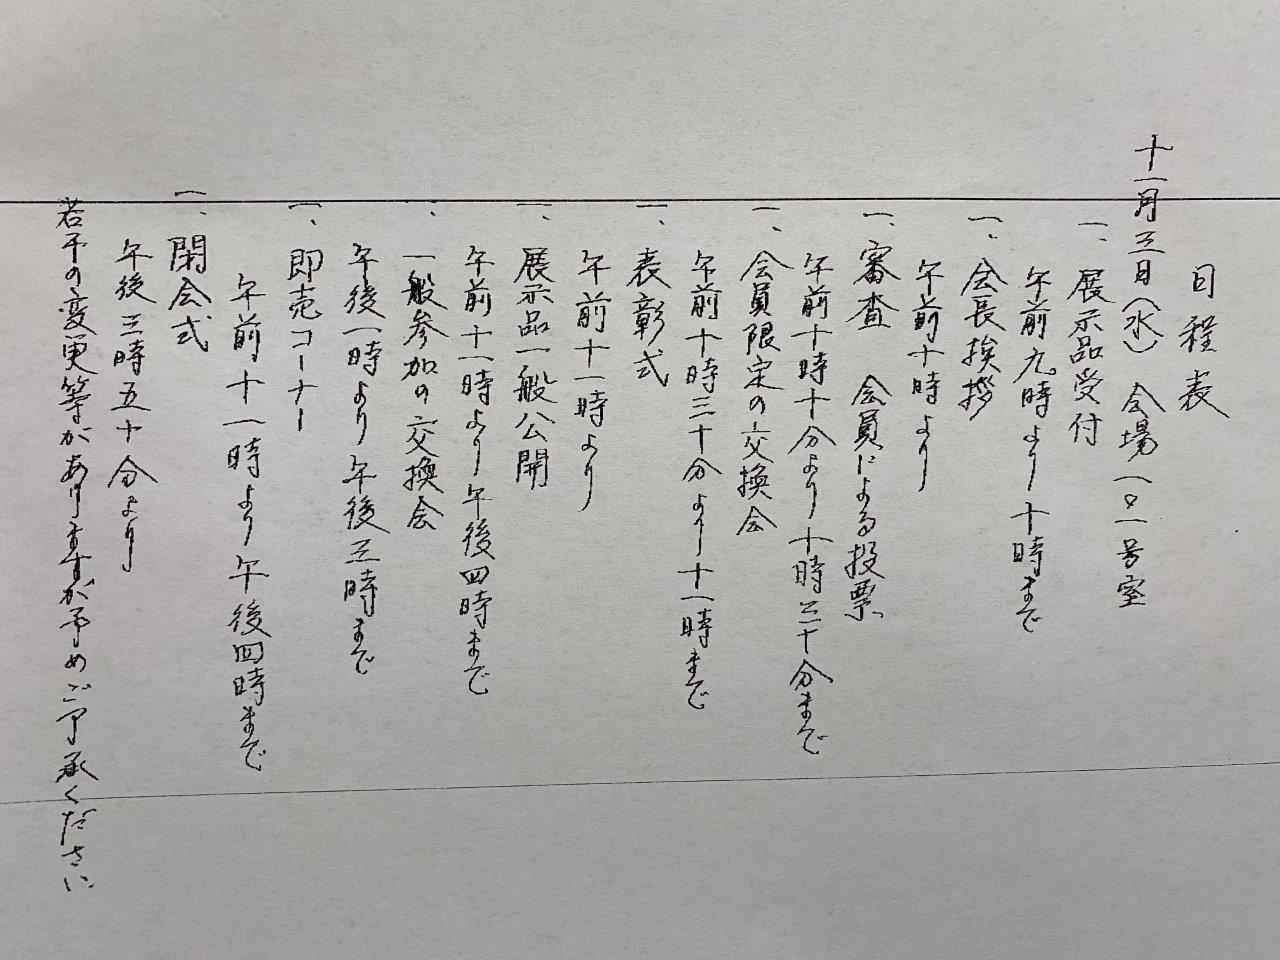 日程表
十一月三日(水) 会場一〇一号室
一、展示品受付
午前九時より十時まで
一、会長挨拶
午前十時より
一、審査 会員による投票
午前十時十分より十時三十分まで
一、会員限定の交換会
午前十時三十分より十一時まで
一、表彰式
午前十一時より
一、展示品一般公開
午前十一時より午後四時まで
一、一般参加の交換会
午後一時より午後三時まで
一、即売コーナー
午前十一時より午後四時まで
一、閉会式
午後三時五十分より
若干の変更等がありますが予めご了承ください